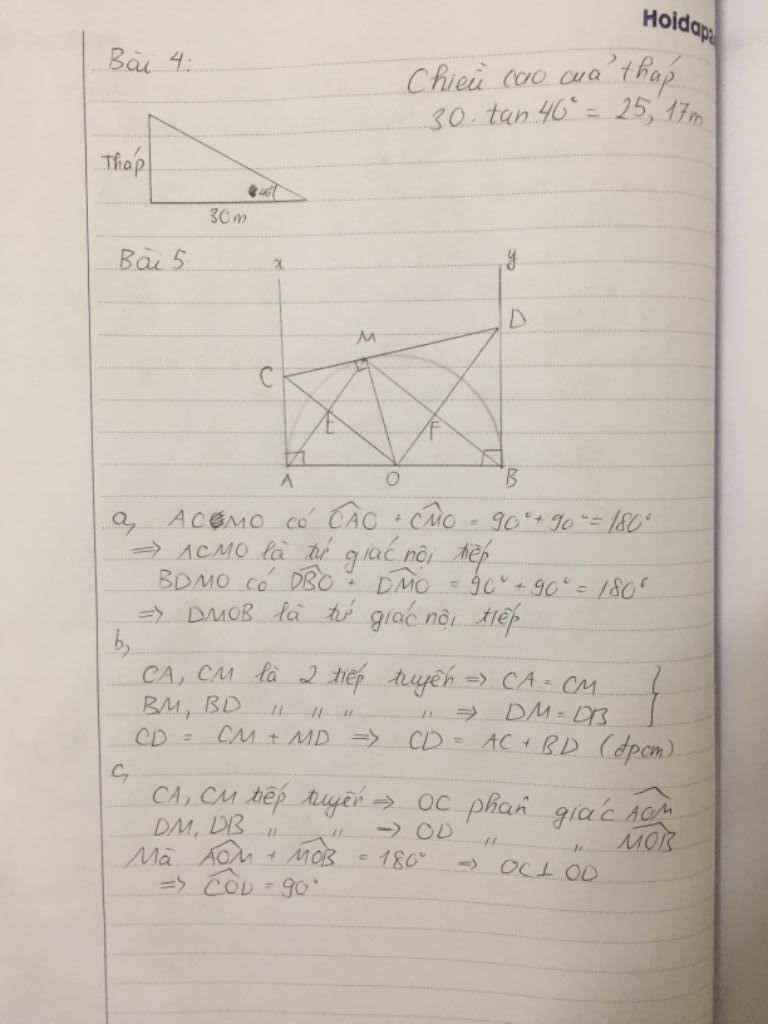 Hoidap
Bài 4:
Chiều cao của tháp
30. tan 40° = 25,17m
Tháp
40°
30m
Bài 5.
x
y
D
M
C
E
F
A
O
B
a, ACMO có CAO + CMO = 90° + 90° = 180°
=> ACMO là tứ giác nội tiếp
BDMO có DBO + DMO = 90° + 90° = 180°
=> DMOB là tứ giác nội tiếp
b,
CA, CM là 2 tiếp tuyến => CA = CM
BM, BD " " " " => DM = DB
CD = CM + MD => CD = AC + BD (đpcm)
c,
CA, CM tiếp tuyến => OC phân giác AOM
DM, DB " " -> OD " " MOB
Mà AOM + MOB = 180° => OC ⊥ OD
=> COD = 90°